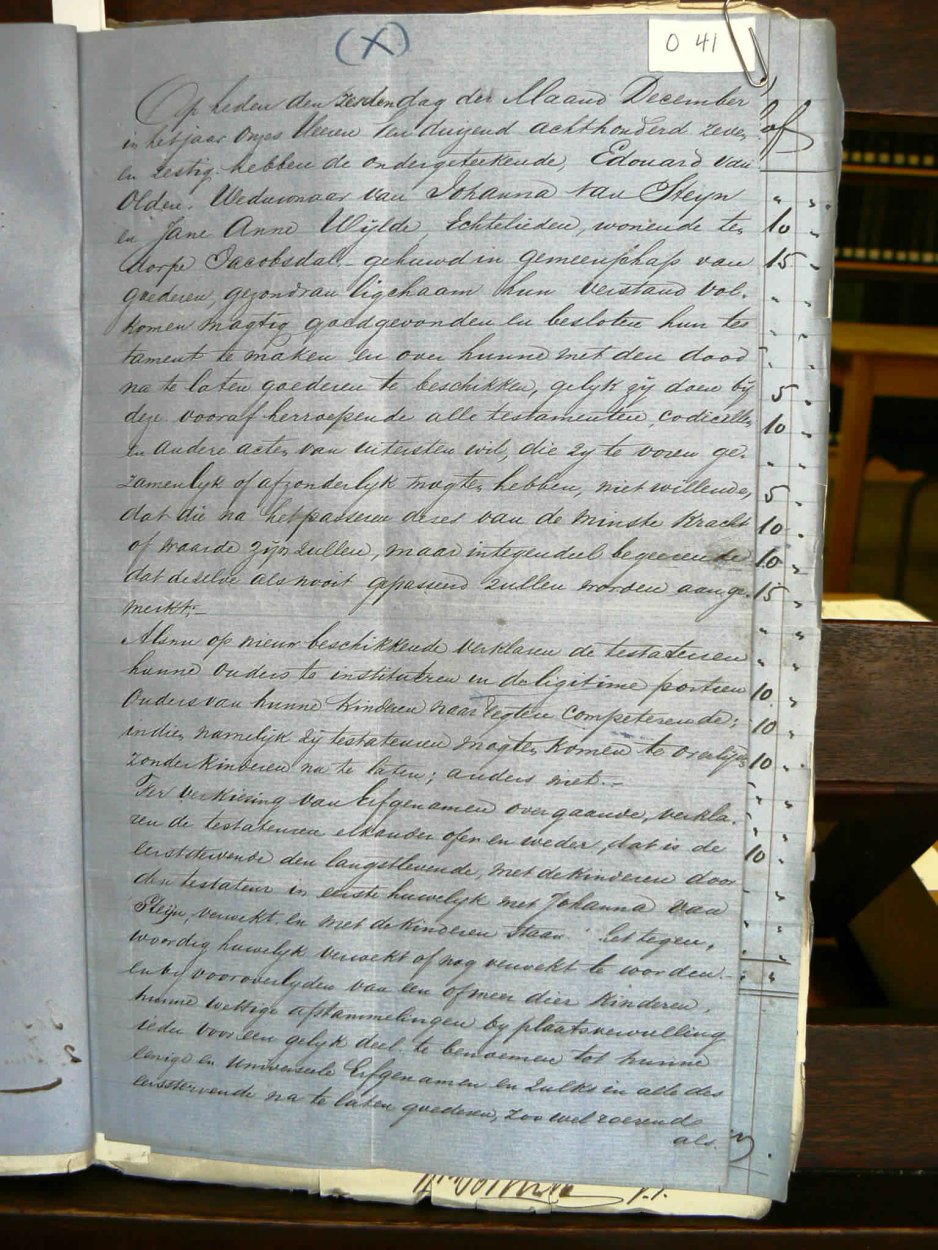 (X)
O 41
Op heden den zesden dag der Maand December
in het jaar onzes Heeren Een duyzend achthonderd zeven
en zestig hebben de ondergeteekende, Edouard van
Olden. Weduwnaar van Johanna van Steyn
en Jane Anne Wijlde, Echtelieden, wonende ten
dorpe Jacobsdal. gehuwd in gemeenschap van
goederen, gezond van ligchaam hun verstand vol-
komen magtig goedgevonden en besloten hun tes
tament te maken en over hunne met den dood
na te laten goederen te beschikken, gelyk zy doen by
dezen vooraf herroepende alle testamenten, codicillen
en andere acten van uitersten wil, die zy te voren ge-
zamenlyk of afzonderlyk mogten hebben, niet willende,
dat die na het passeren dezes van de minste kracht
of waarde zyn zullen, maar integendeel begeerende
dat deselve als nooit gepasseerd zullen worden aange-
merkt;-
Alsnu op nieuw beschikkende verklaren de testateuren
hunne ouders te institueren in de ligitime portien
Ouders van hunne kinderen naar regten competerende;
indien namelijk zij testateuren mogten komen te overlijden
zonder kinderen na te laten; anders niet.-
Ter verkiesing van Erfgenamen overgaande, verkla-
ren de testateuren elkander over en weder, dat is de
eerststervende den langstlevende, met de kinderen door
den testateur in eerste huwelyk met Johanna van
Steijn, verwekt en met de kinderen staan het tegen,
woordig huwelyk verwekt of nog verwekt te worden
en by vooroverlyden van een of meer dier kinderen,
hunne wettige afstammelingen by plaatsvervulling
ieder voor een gelyk deel te benoemen tot hunne
eenige en Universeele Erfgenamen en zulks in alle des
eerststervende na te laten goederen, zoo wel roerende
als
10
15
5
10
5
10
10
15
10
10
10
10